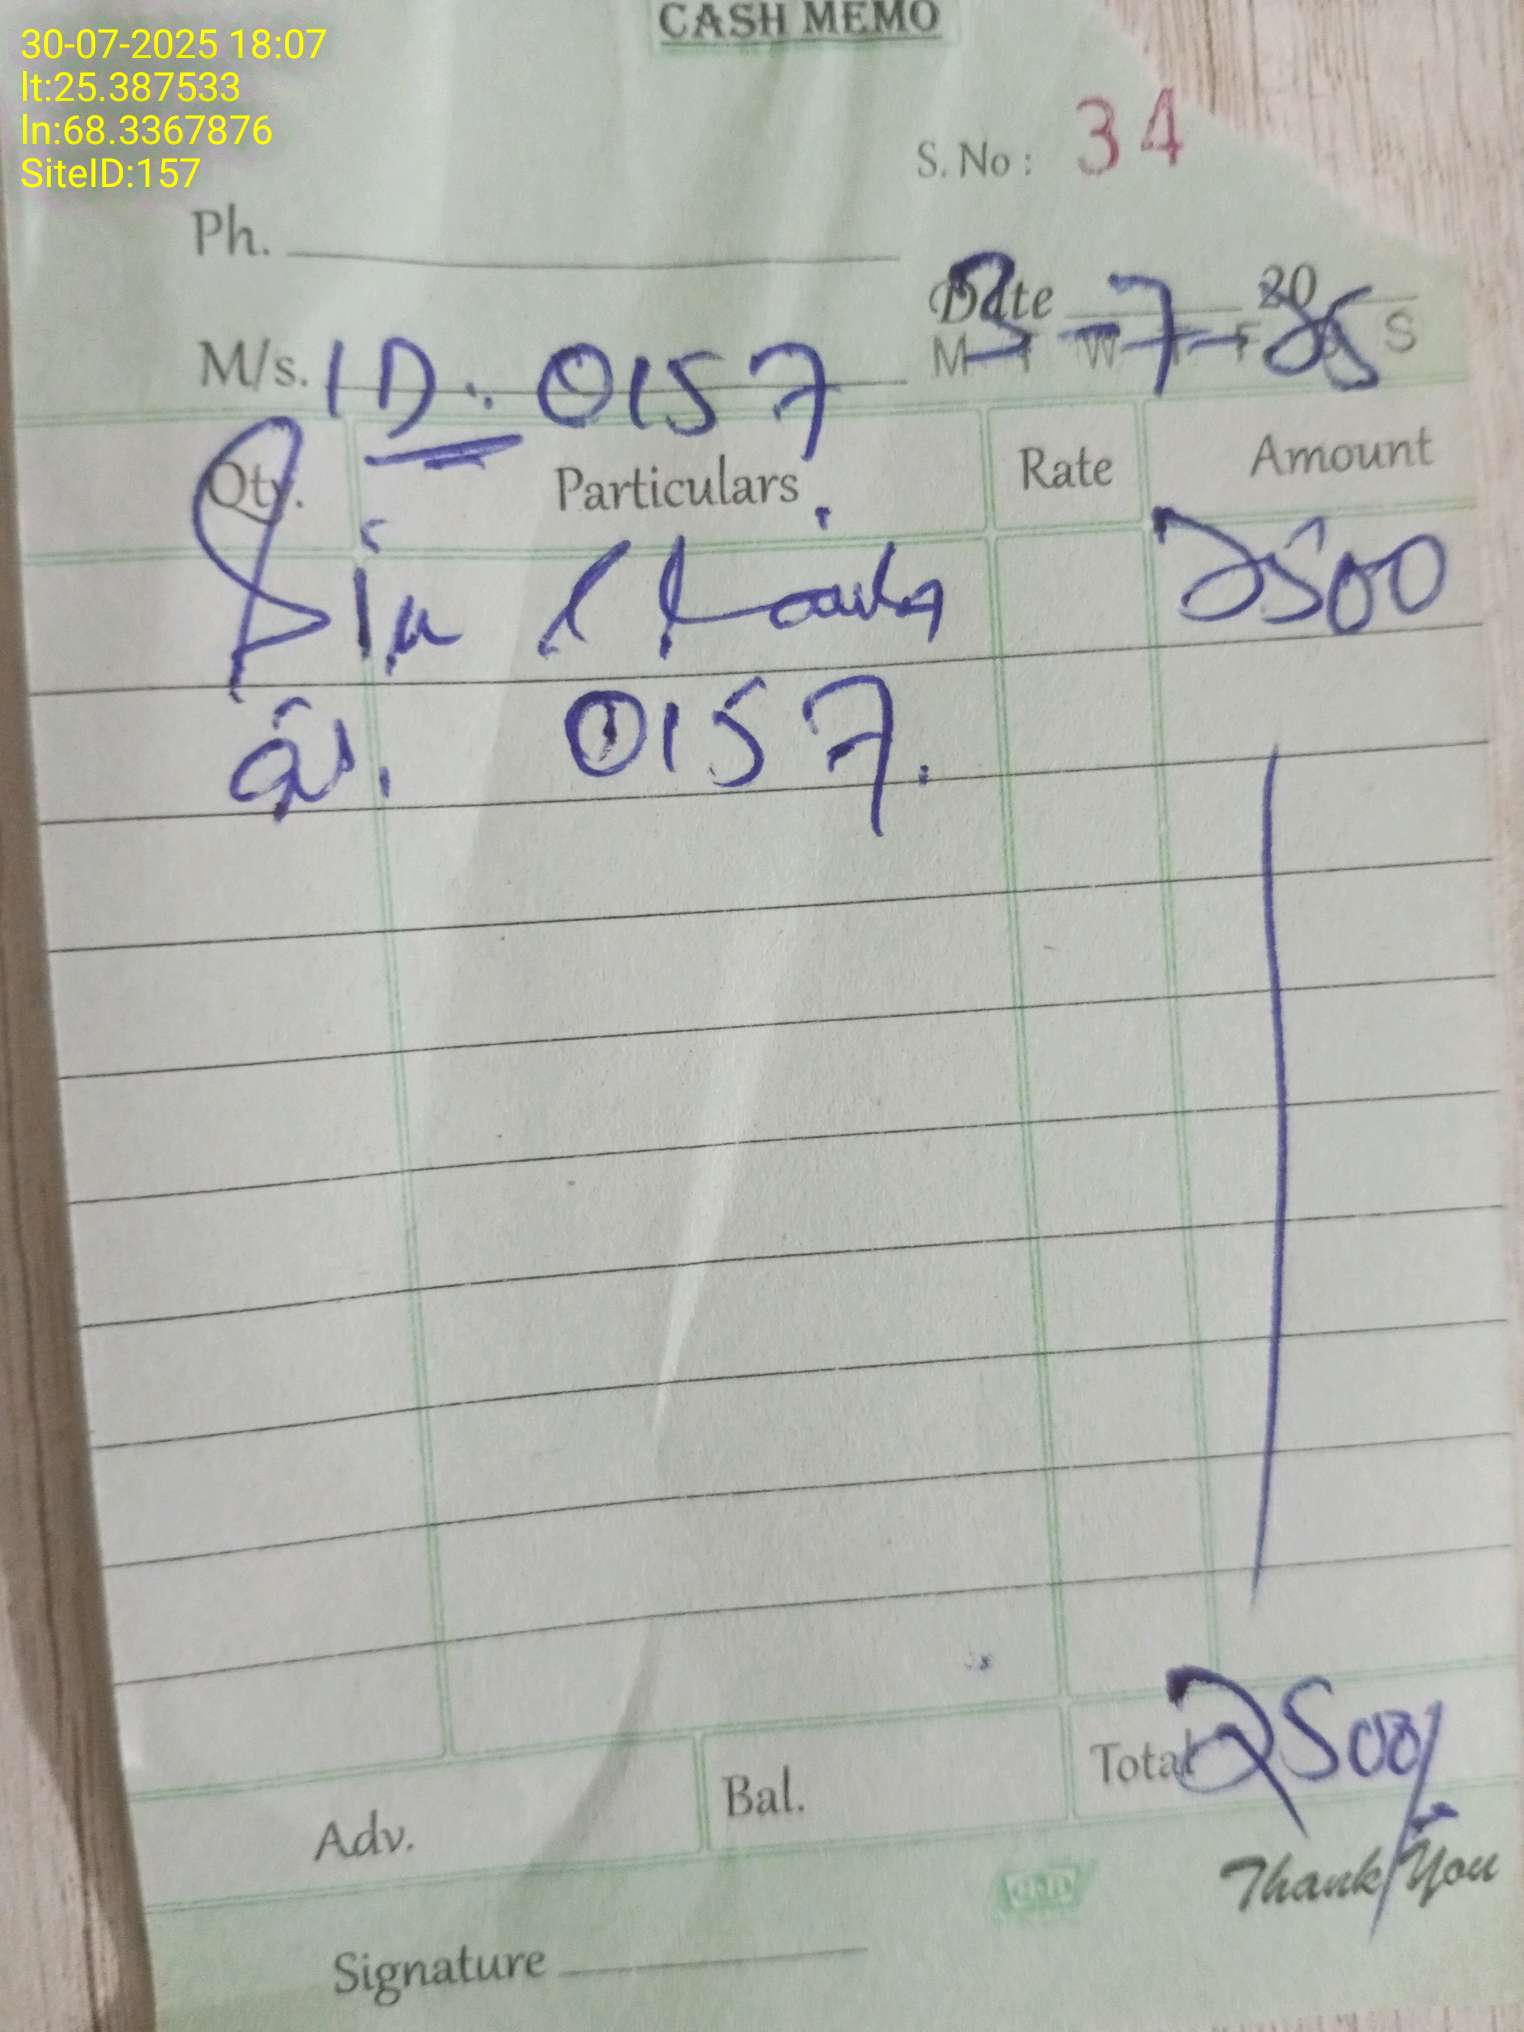 30-07-2025 18:07
lt:25.387533
ln:68.3367876
SiteID:157
CASH MEMO
S. No : 34
Ph.
Date 3-7-25 20
M/s. ID: 0157
M T W T F S S
Qty. Particulars Rate Amount
2500
0157.
Adv. Bal. Total 2500/-
Thank You
Signature